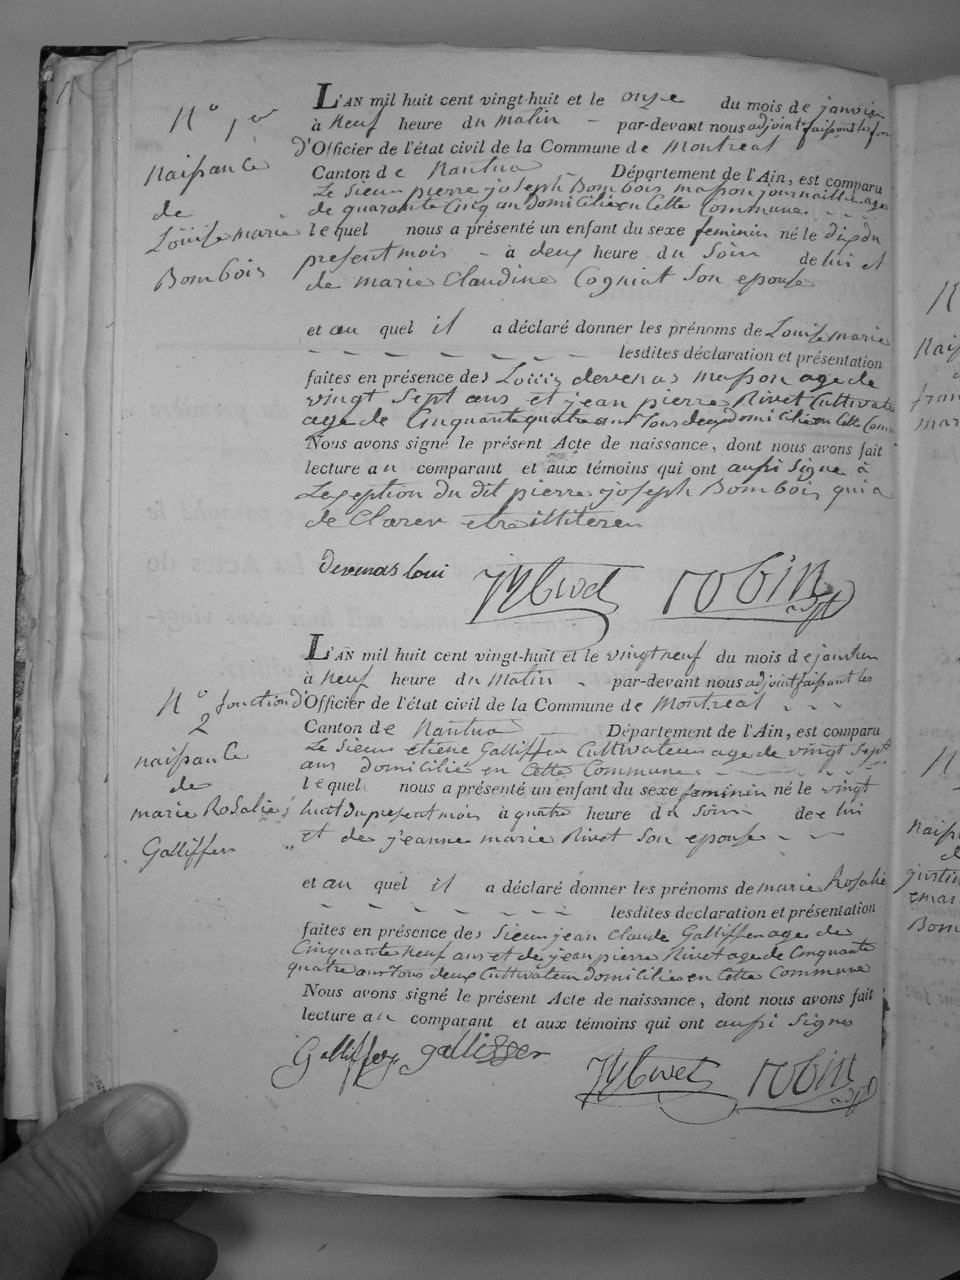 N.o 1er
Naissance
de
Loüise marie
Bombois
L'AN mil huit cent vingt-huit et le onze du mois de janvier
à neuf heure du matin - par-devant nous adjoint faisant les fon
d'Officier de l'état civil de la Commune de Montreal
Canton de Nantua Département de l'Ain, est comparu
Le Sieur pierre joseph Bombois masson journaillier age
de quarante Cinq an domicilié en Cette Commune
lequel nous a présenté un enfant du sexe feminin né le dix du
present mois - à deux heure du Soir de lui et
de marie Claudine Cogniat Son epouse
et au quel il a déclaré donner les prénoms de Louise marie
lesdites déclaration et présentation
faites en présence des Louis devenas masson age de
vingt Sept ans et jean pierre Rivet Cultivate
age de Cinquante quatre ans Tous deux domicilie en Cette Com
Nous avons signé le présent Acte de naissance, dont nous avons fait
lecture au comparant et aux témoins qui ont aussi Signe à
Lexeption du dit pierre joseph Bombois qui a
de Clarer etre illiteré
devenas loui JP Rivet robin adjt
N.o 2
naissance
de
marie Rosalie
Galliffer
L'AN mil huit cent vingt-huit et le vingt neuf du mois de janvier
à Neuf heure du Matin - par-devant nous adjoint faisant les
fonction d'Officier de l'état civil de la Commune de Montreal
Canton de Nantua Département de l'Ain, est comparu
Le Sieur etiene Galliffer Cultivateur age de vingt Sept
ans domicilié en Cette Commune
lequel nous a présenté un enfant du sexe feminin né le vingt
huit du present mois à quatre heure du Soir de lui
et de jeanne marie Rivet Son epouse
et au quel il a déclaré donner les prénoms de marie Rosalie
lesdites déclaration et présentation
faites en présence des Sieur jean Claude Galliffer age de
Cinquante Neuf ans et de jean pierre Rivet age de Cinquante
quatre ans Tous deux Cultivateur domicilié en Cette Commune
Nous avons signé le présent Acte de naissance, dont nous avons fait
lecture au comparant et aux témoins qui ont aussi Signe
Galliffer gallisser JP Rivet robin adjt